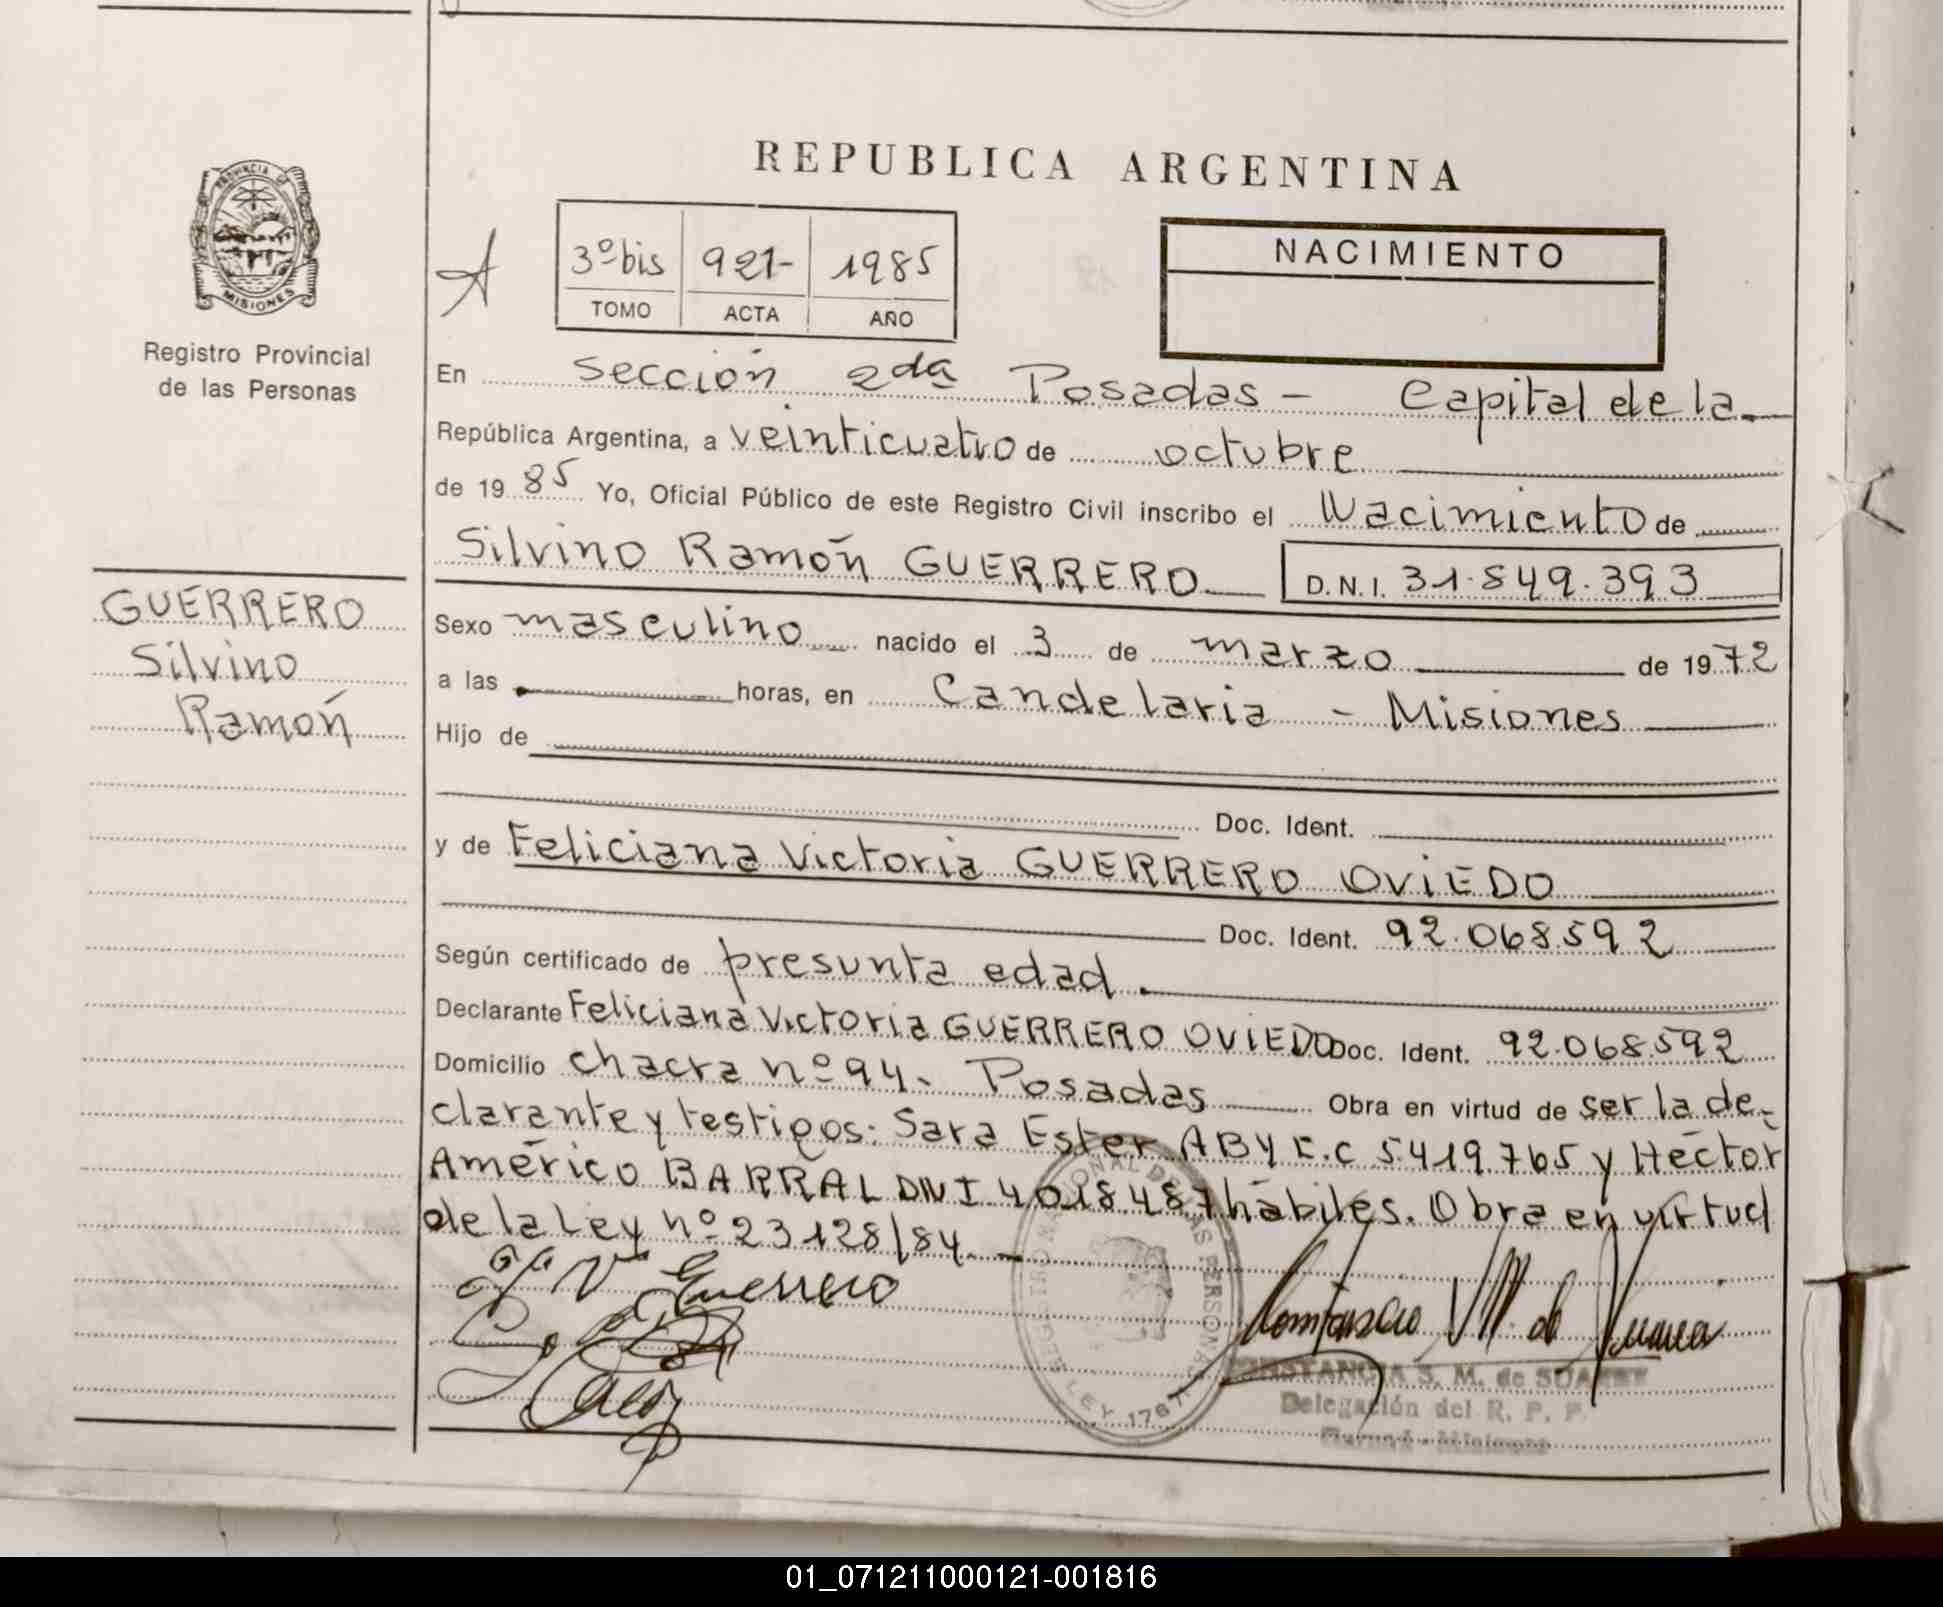 REPUBLICA ARGENTINA
PROVINCIA DE
MISIONES
Registro Provincial
de las Personas
A
3º bis 921- 1985
TOMO ACTA AÑO
NACIMIENTO
En Sección 2da Posadas - Capital de la
República Argentina, a veinticuatro de octubre
de 1985 Yo, Oficial Público de este Registro Civil inscribo el Nacimiento de
Silvino Ramón GUERRERO D.N.I. 31.849.393
GUERRERO
Silvino
Ramón
Sexo masculino nacido el 3 de marzo de 1972
a las horas, en Candelaria - Misiones
Hijo de
Doc. Ident.
y de Feliciana Victoria GUERRERO OVIEDO
Doc. Ident. 92.068.592
Según certificado de presunta edad.
Declarante Feliciana Victoria GUERRERO OVIEDO Doc. Ident. 92.068.592
Domicilio chacra nº 94. Posadas Obra en virtud de ser la de-
clarante y testigos: Sara Ester ABY L.C 5.419.765 y Héctor
Américo BARRAL DNI 4018487 hábiles. Obra en virtud
de la Ley nº 23.128/84.-
Fª Vª Guerrero
REGISTRO NACIONAL DE LAS PERSONAS
LEY 1767
CONSTANCIA S. M. de SUAREZ
Delegación del R. P. P.
Misiones
01_071211000121-001816